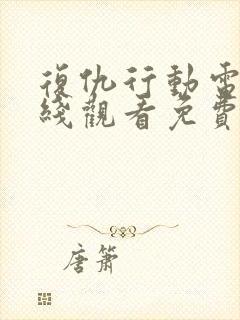 復仇行動電
綫觀看免費
唐簫